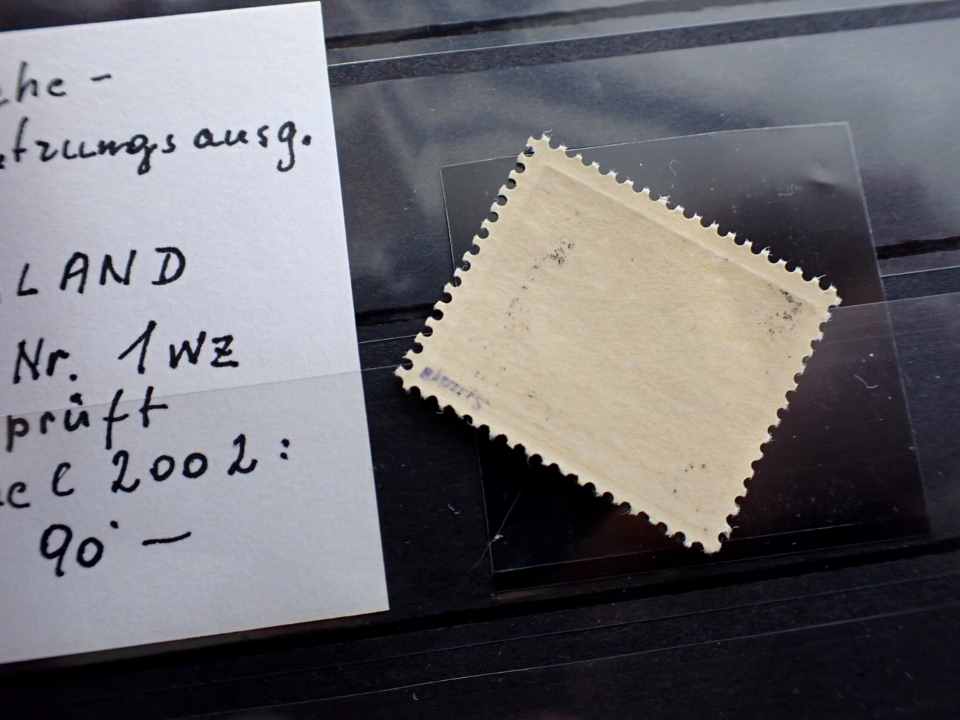 che -
etzungsausg.
LAND
Nr. 1 WZ
prüft
el 2002:
90.—